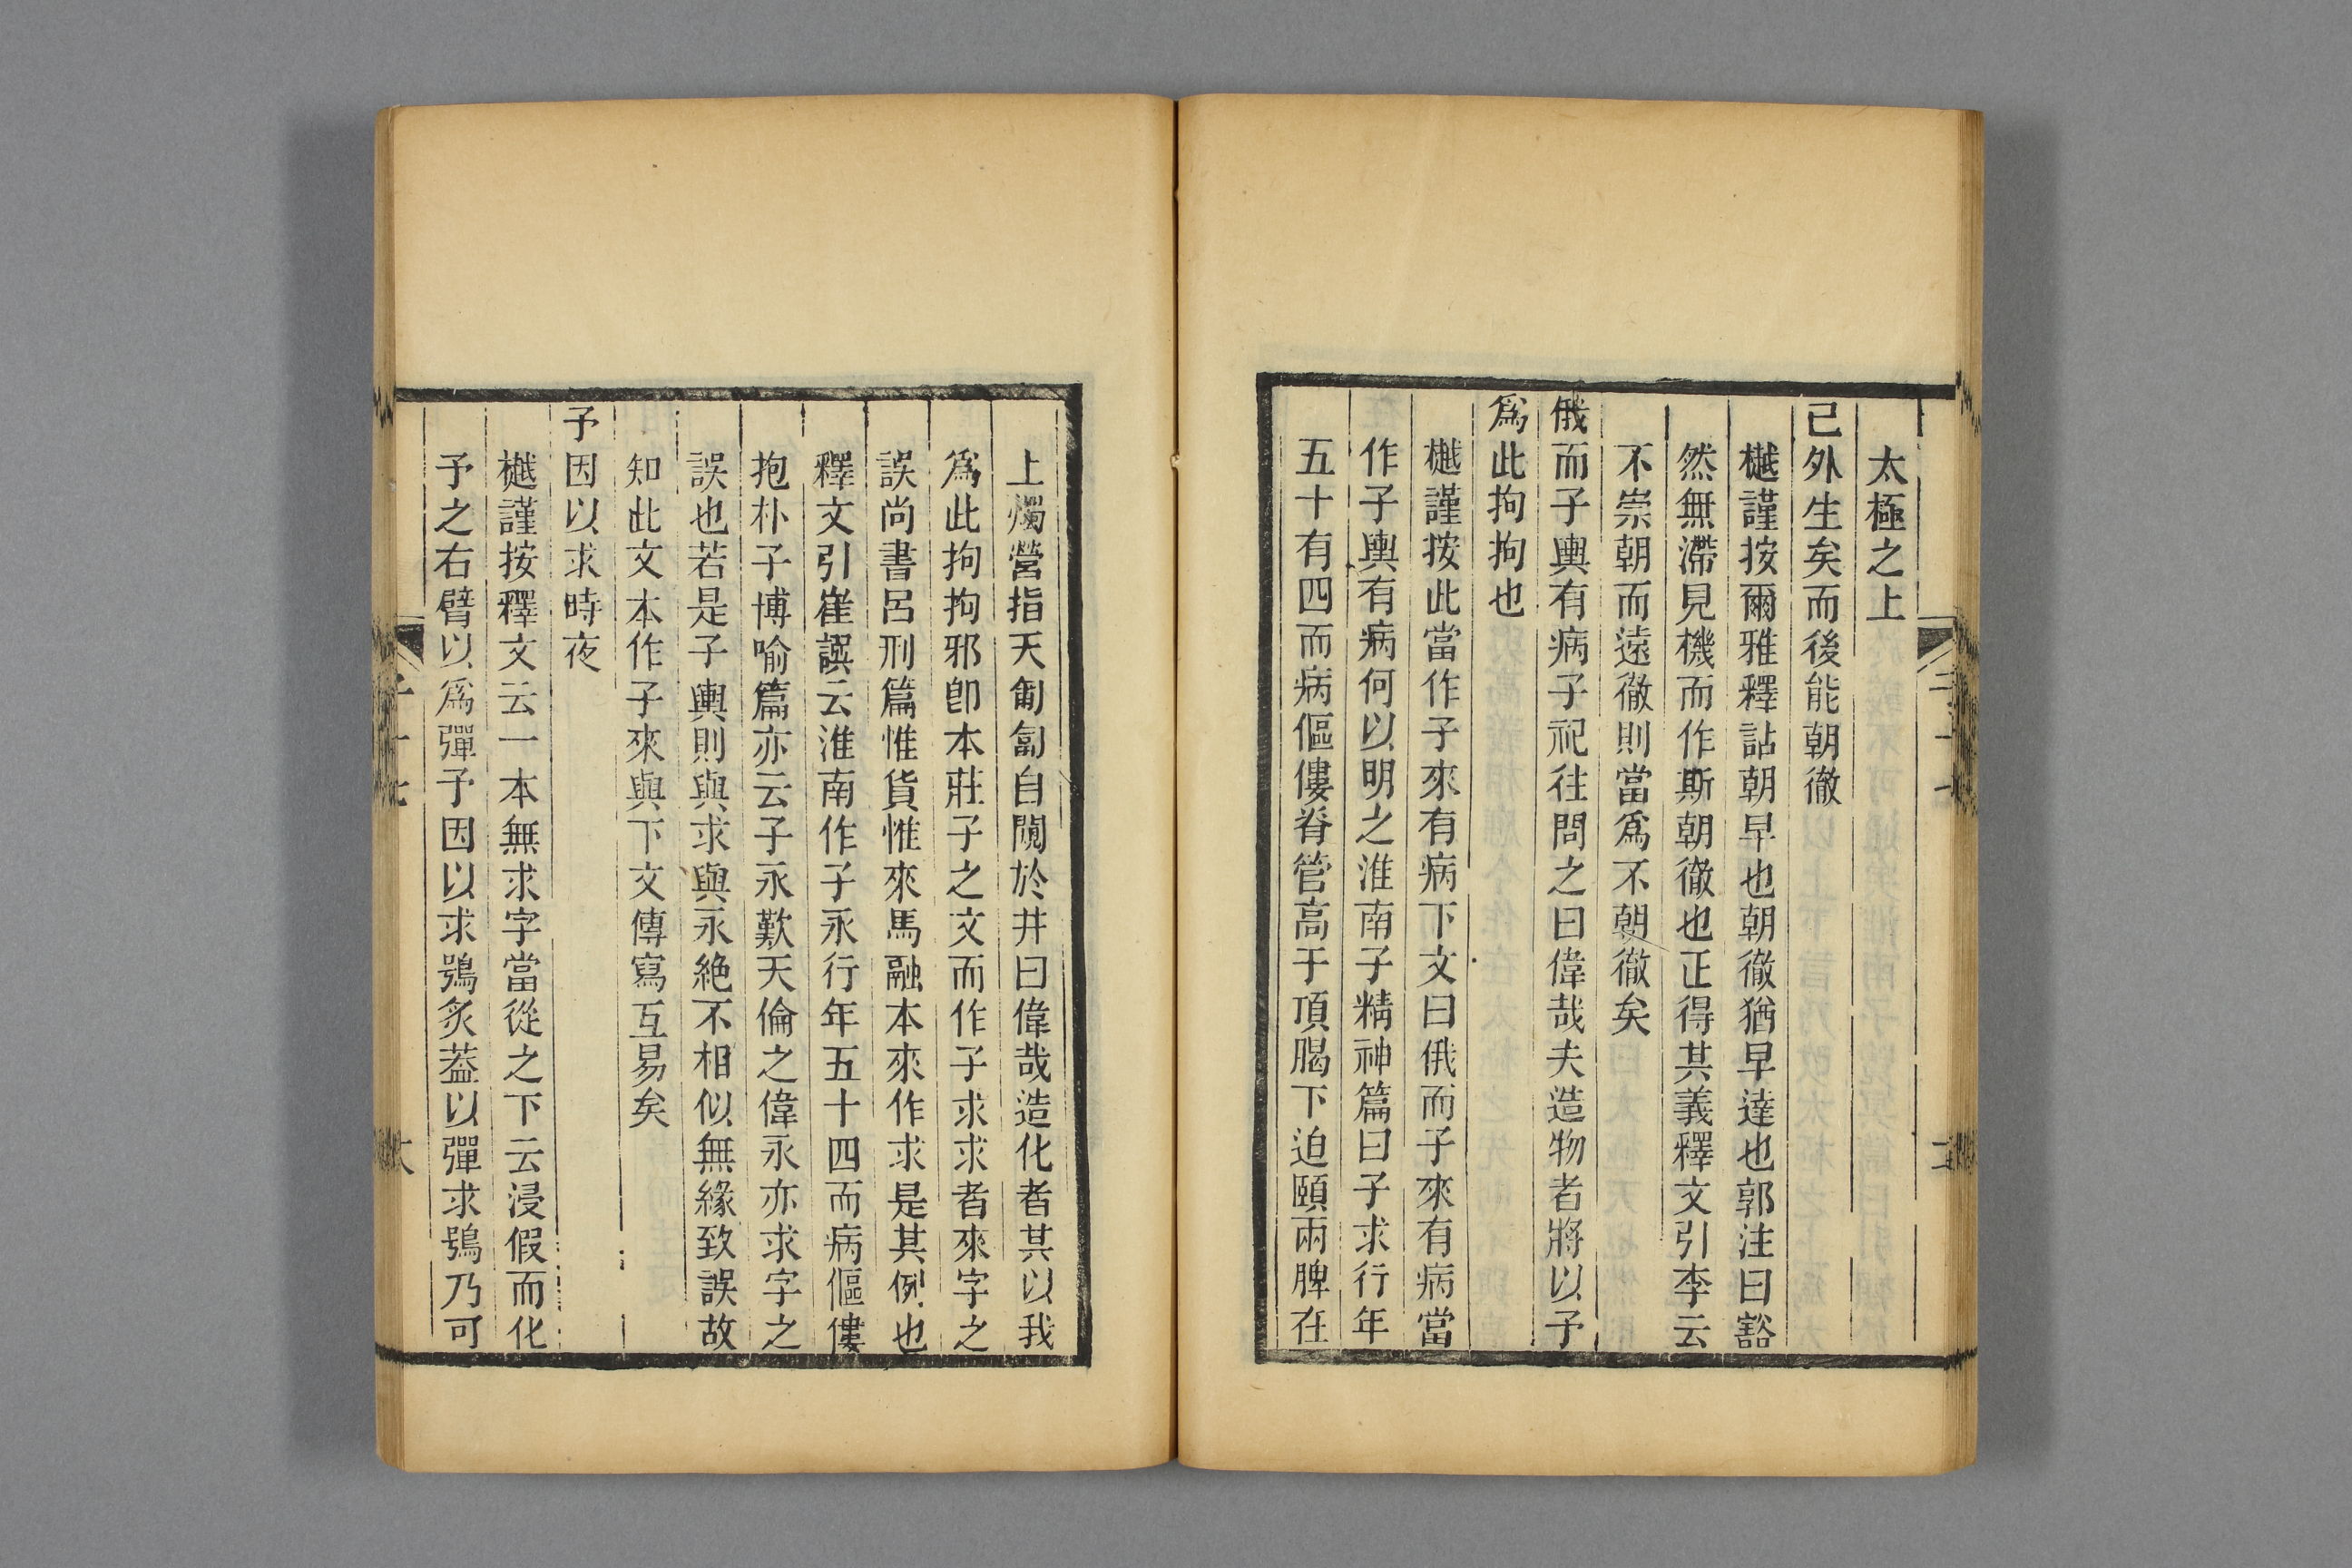 太極之上
已外生矣而後能朝徹
樾謹按爾雅釋詁朝早也朝徹猶早達也郭注曰豁
然無滯見機而作斯朝徹也正得其義釋文引李云
不崇朝而遠徹則當爲不朝徹矣
俄而子輿有病子祀往問之曰偉哉夫造物者將以予
爲此拘拘也
樾謹按此當作子來有病下文曰俄而子來有病當
作子輿有病何以明之淮南子精神篇曰子求行年
五十有四而病傴僂脊管高于頂𦞅下迫頤兩脾在
上燭營指天匍匐自闚於井曰偉哉造化者其以我
爲此拘拘邪卽本莊子之文而作子求求者來字之
誤尚書呂刑篇惟貨惟來馬融本來作求是其例也
釋文引崔譔云淮南作子永行年五十四而病傴僂
抱朴子博喻篇亦云子永歎天倫之偉永亦求字之
誤也若是子輿則與求與永絕不相似無緣致誤故
知此文本作子來與下文傳寫互易矣
予因以求時夜
樾謹按釋文云一本無求字當從之下云浸假而化
予之右臂以爲彈予因以求鴞炙葢以彈求鴞乃可